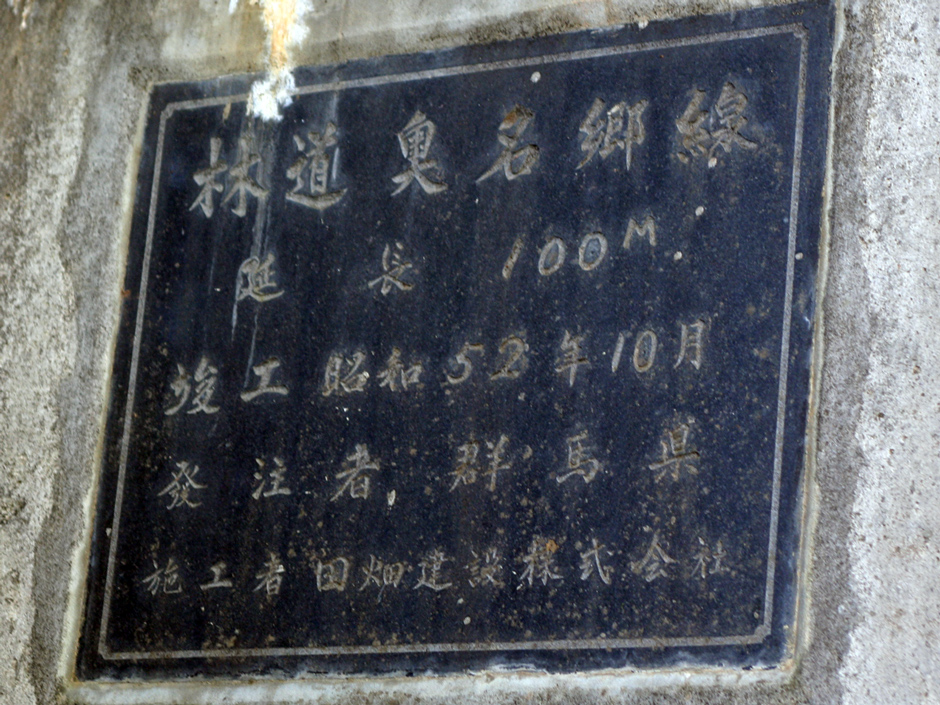 林道奥名郷線
延長 100M
竣工 昭和52年10月
發注者 群馬県
施工者 田畑建設株式会社